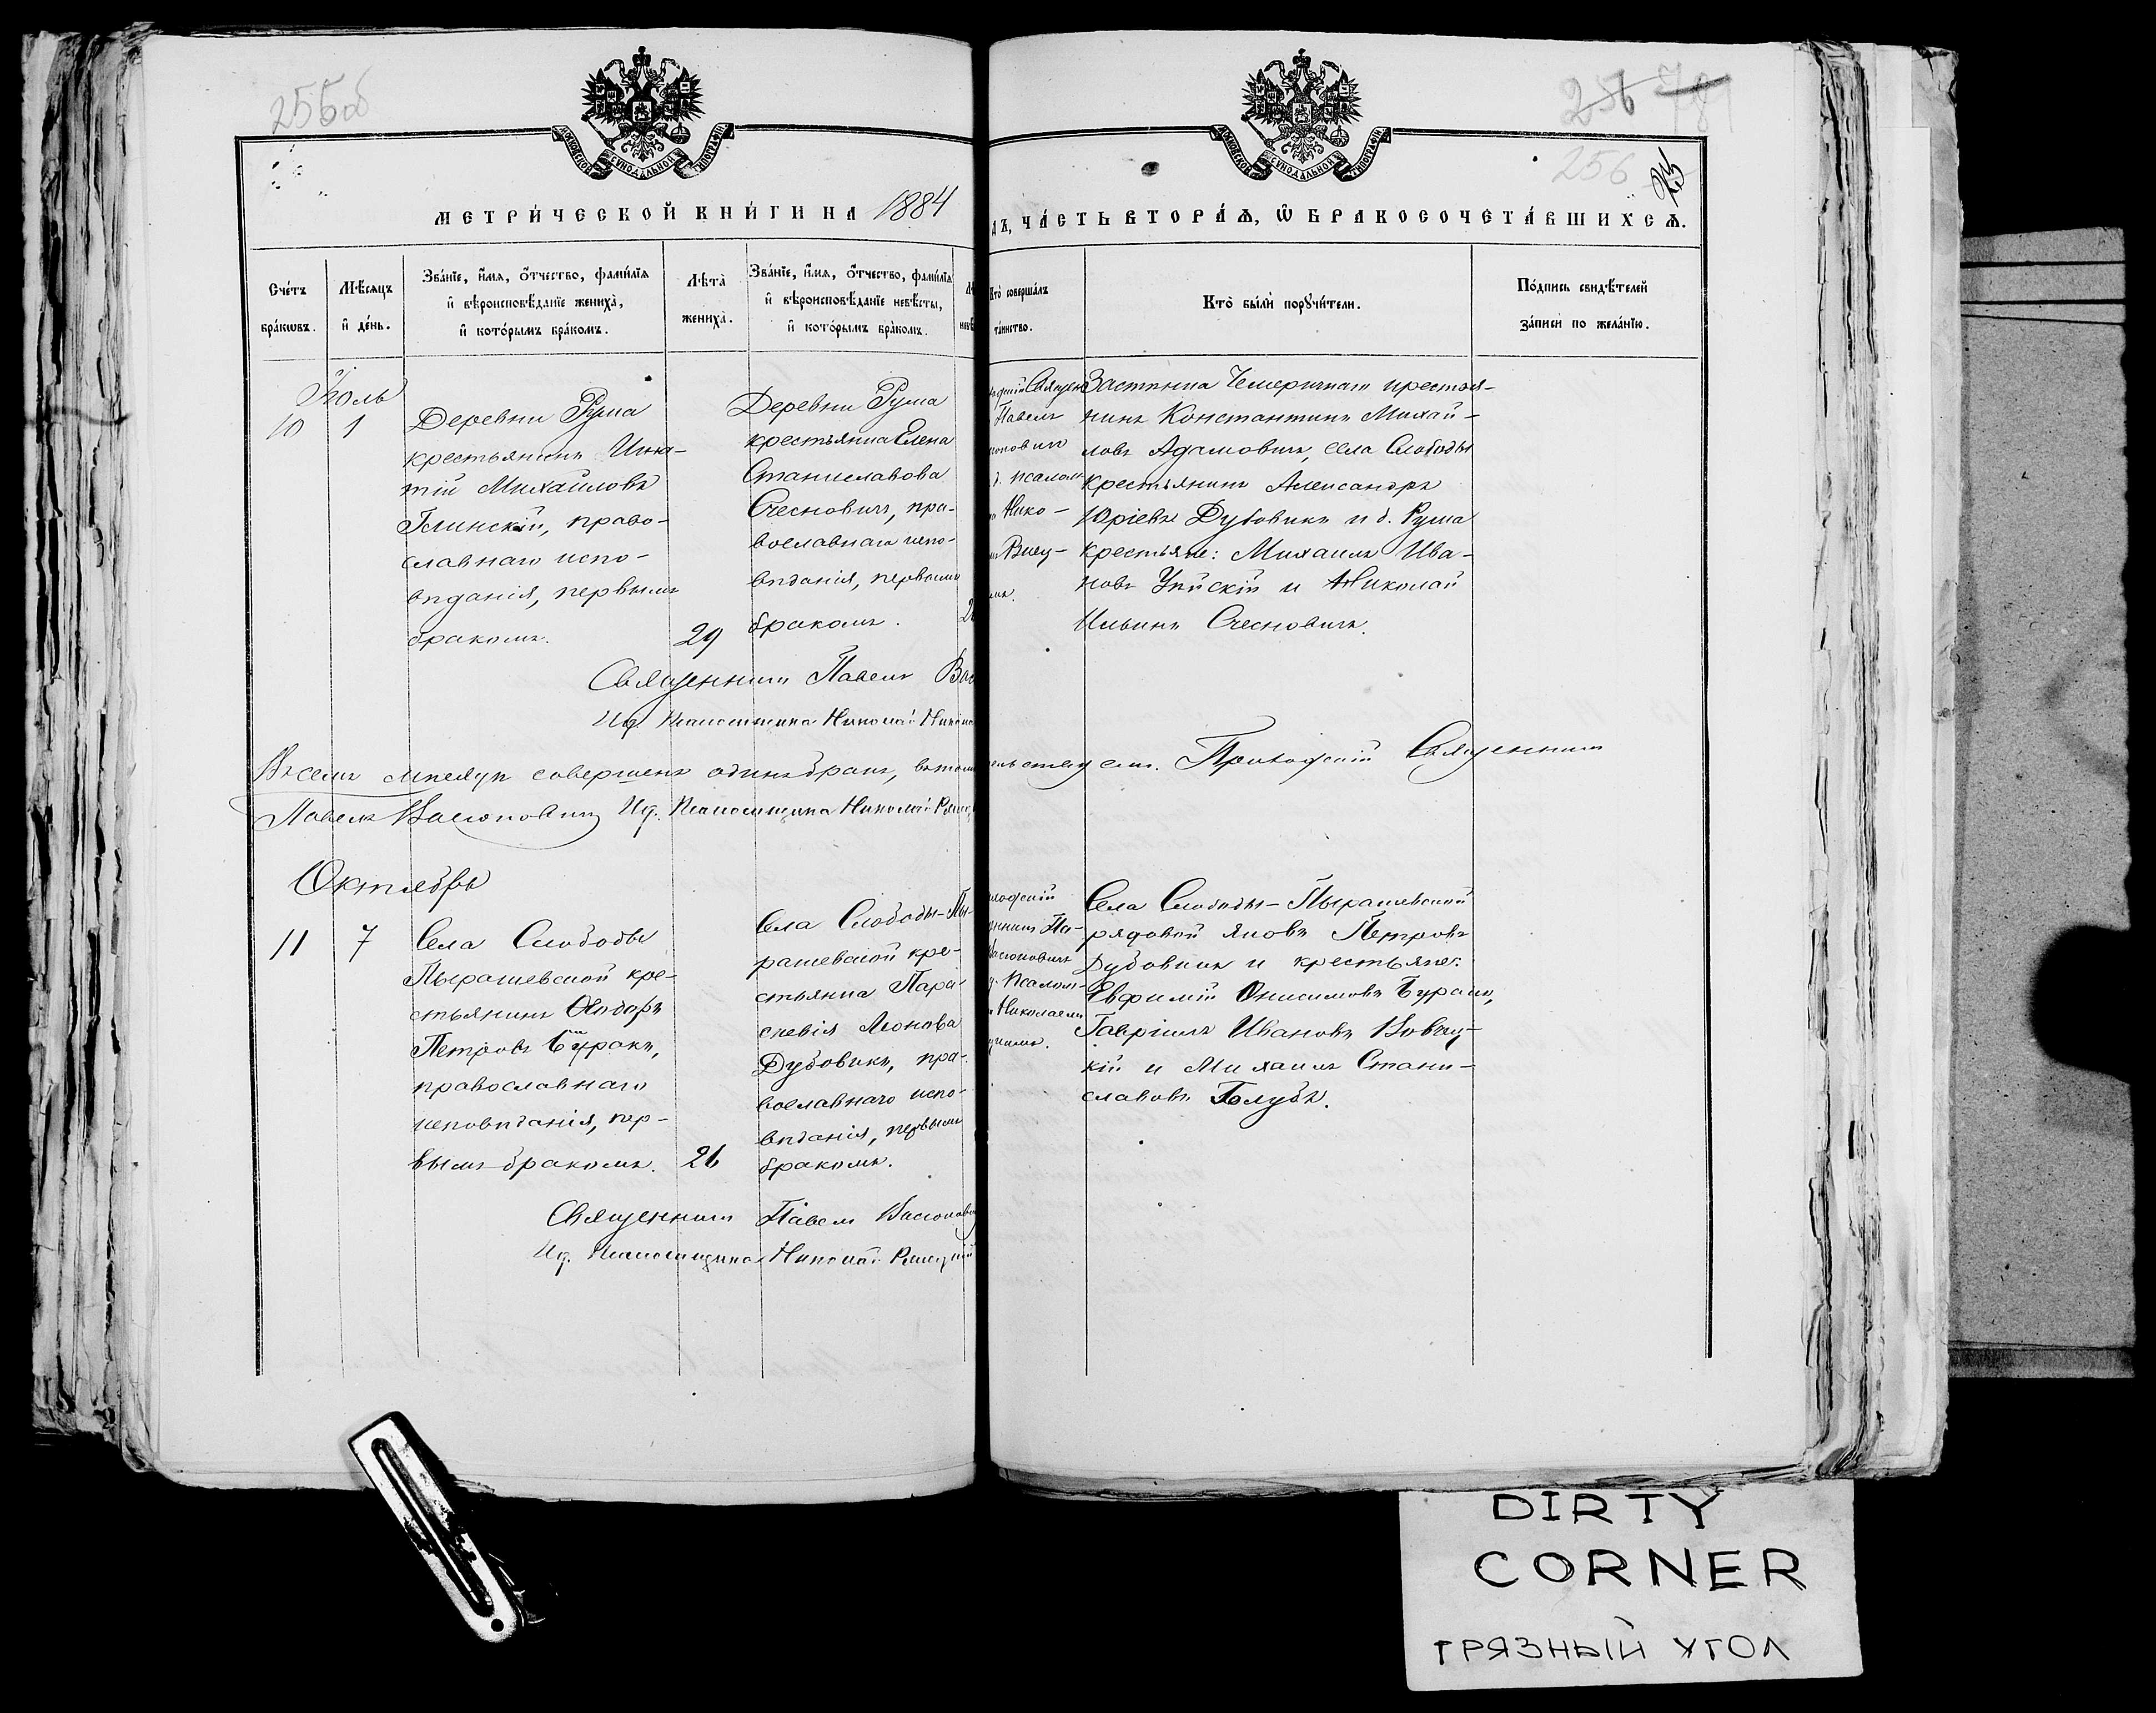 255об
256
256
МОСКОВСКОЙ СѴНОДАЛЬНОЙ ТИПОГРАФІИ.
МОСКОВСКОЙ СѴНОДАЛЬНОЙ ТИПОГРАФІИ.
МЕТРИ́ЧЕСКОЙ КНИ́ГИ НА 1884
ДЪ, ЧА́СТЬ ВТОРА́Ѧ, Ѽ БРАКОСОЧЕТА́ВШИХСѦ.
Сче́тъ бра́кѡвъ.
Мѣ́сѧцъ и҆ де́нь.
Зва́нїе, и҆́мѧ, ѻ҆́тчество, фами́лїѧ
и҆ вѣ́роисповѣ́данїе жениха̀,
и҆ кото́рымъ бра́комъ.
Лѣта̀ жениха̀.
Зва́нїе, и҆́мѧ, ѻ҆́тчество, фами́лїѧ
и҆ вѣ́роисповѣ́данїе невѣ́сты,
и҆ кото́рымъ бра́комъ.
Кто̀ соверша́лъ
та́инство.
Кто̀ бы́ли порꙋчи́тели.
По́дпись свидѣ́телей
за́писи по жела́нїю.
Іюль
10 1
Деревни Рума
крестьянинъ Игна-
тій Михайловъ
Глинскій, право-
славнаго испо-
вѣданія, первымъ
бракомъ.
29
Деревни Рума
крестьянка Елена
Станиславова
Счесновичъ, пра-
вославнаго испо-
вѣданія, первымъ
бракомъ.
Священ
Павелъ
Нико-
Застѣнка Чемеричнаго крестья-
нинъ Константинъ Михай-
ловъ Адамовичъ, села Слободы
крестьянинъ Александръ
Юріевъ Дубовикъ и д. Рума
крестьяне: Михаилъ Ива-
новъ и Николай
Ильинъ Счесновичъ.
Священникъ Павелъ
Ид. Псаломщика Николай
Въ семъ мѣсяцѣ совершенъ одинъ бракъ,
Приходскій Священникъ
Павелъ Васюковичъ Ид. Псаломщика Николай
Октябрь
11 7
Села Слободы
Пырашевской кре-
стьянинъ Ѳеодоръ
Петровъ Буракъ,
православнаго
исповѣданія, пер-
вымъ бракомъ.
26
Села Слободы-Пы-
рашевской кре-
стьянка Пара-
скевія Леонова
Дубовикъ, пра-
вославнаго испо-
вѣданія, первымъ
бракомъ.
Па-
Псалом-
Николаемъ
Села Слободы-Пырашевской
рядовой Яковъ Петровъ
Дубовикъ и крестьяне:
Евфимій Онисимовъ Буракъ,
Гавріилъ Ивановъ
кій и Михаилъ Стани-
славовъ Голубъ.
Священникъ Павелъ Васюкович
Ид. Псаломщика Николай
DIRTY
CORNER
ГРЯЗНЫЙ УГОЛ